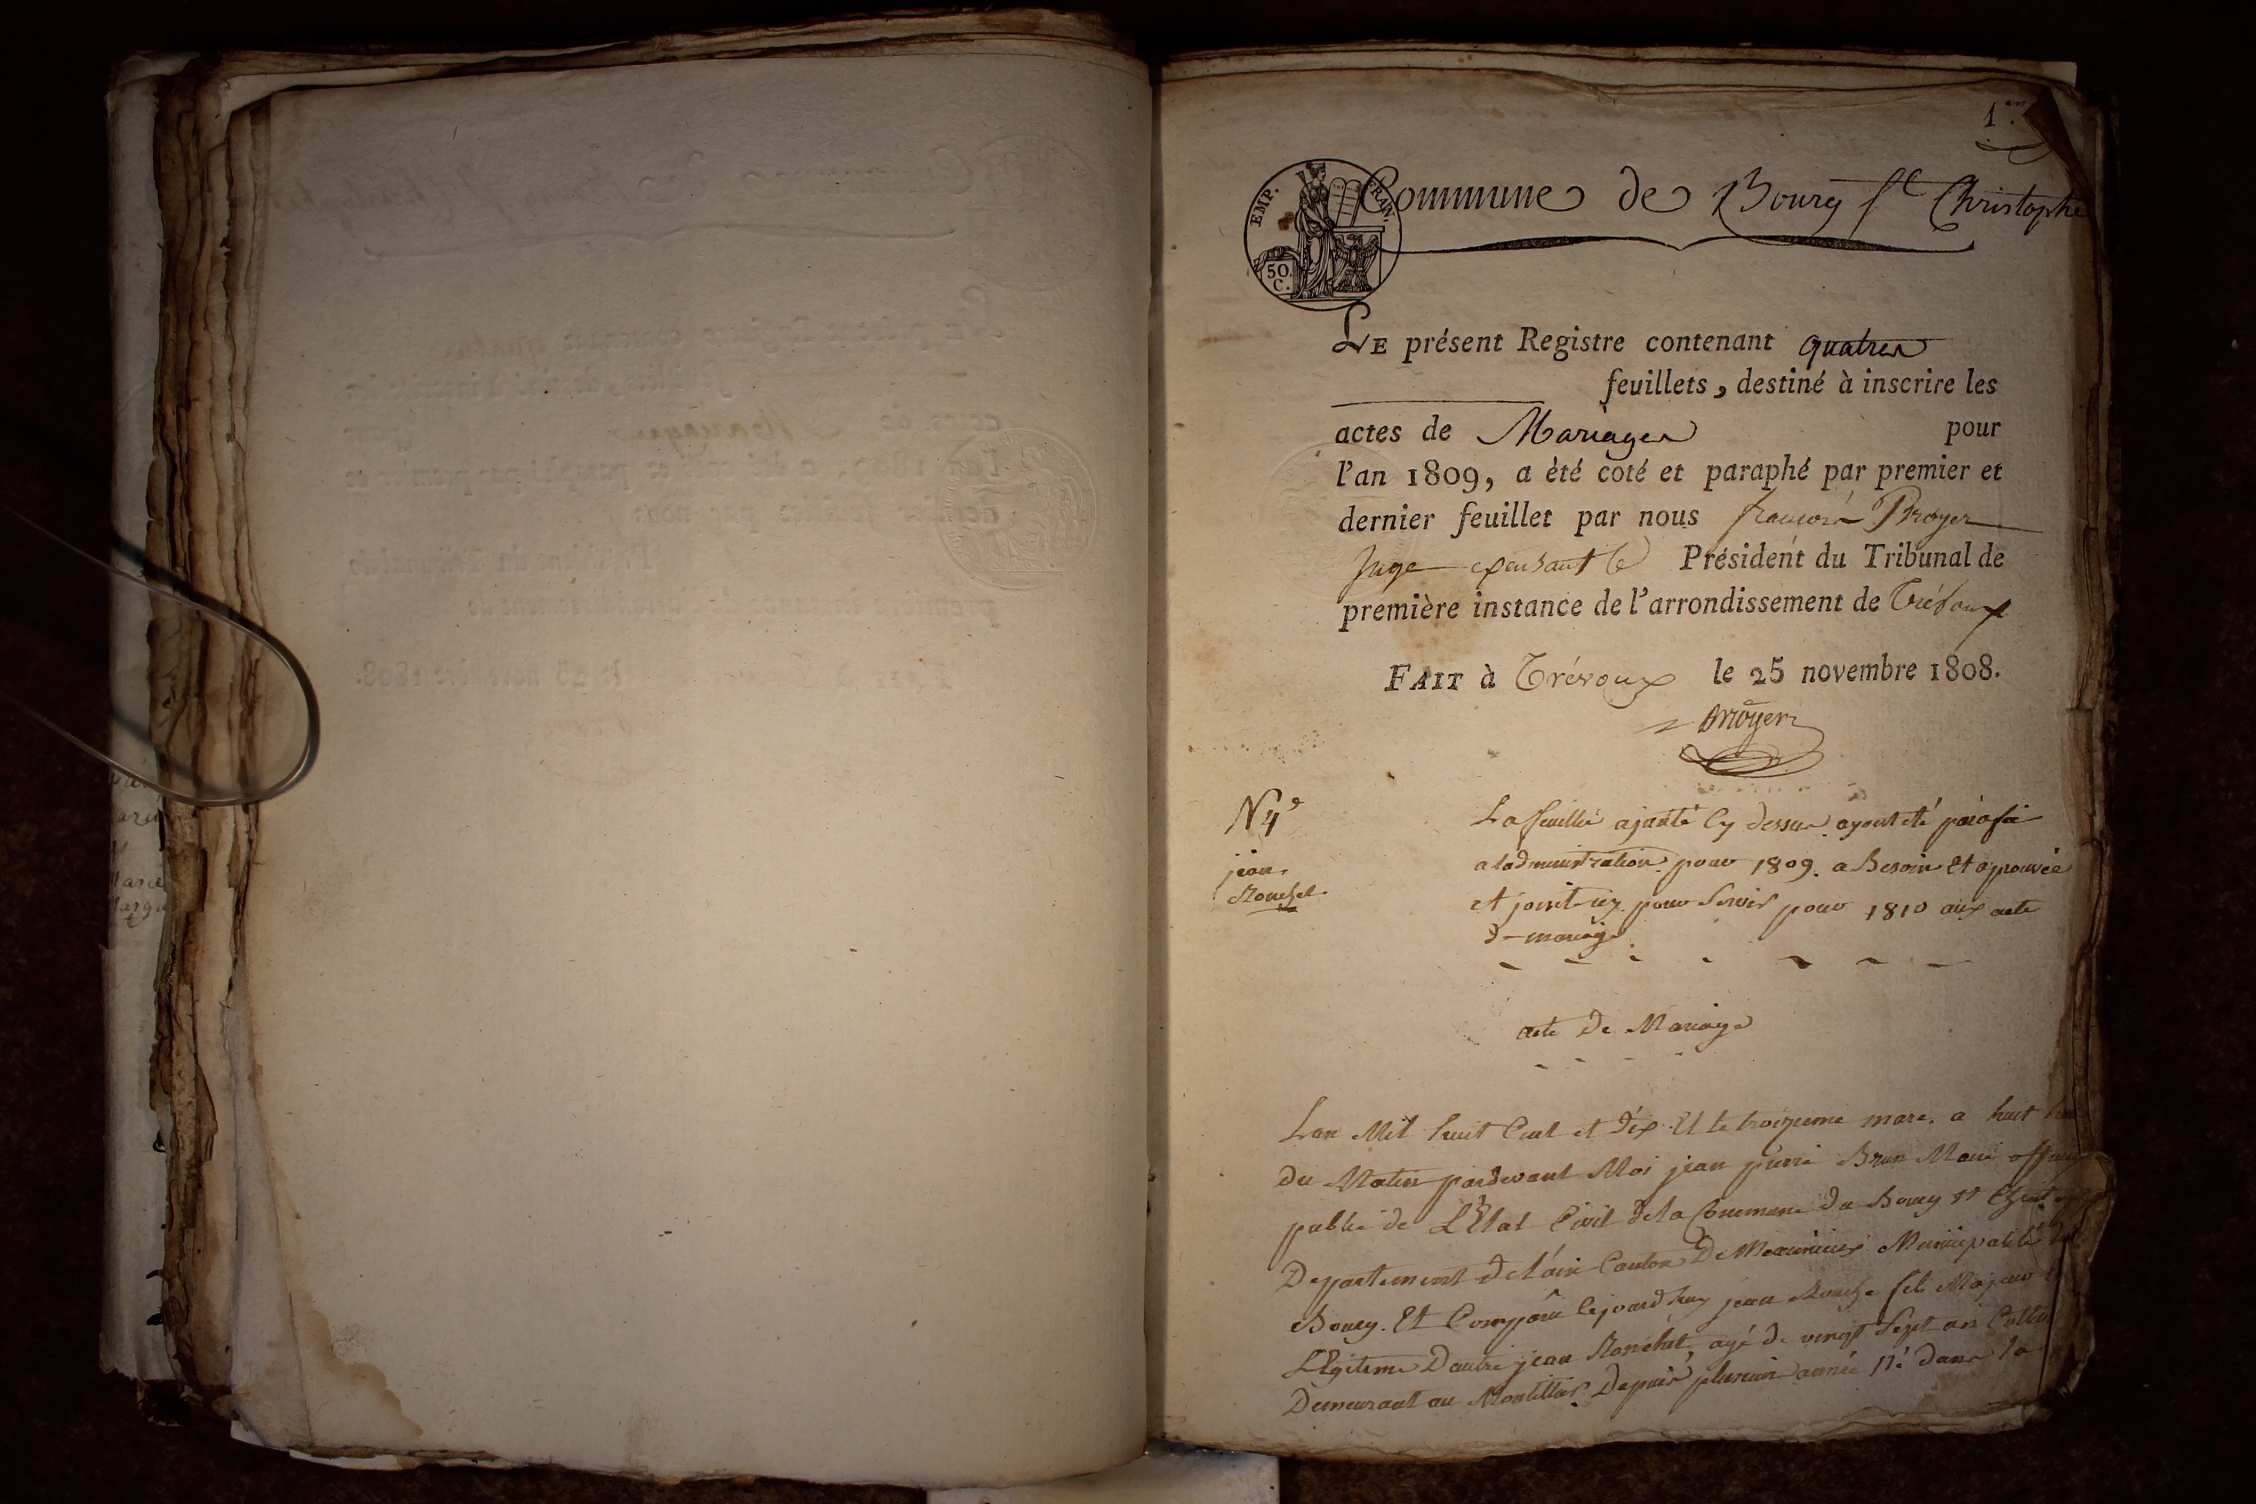 1er
EMP. FRAN.
50 C.
Commune de Bourg St Christophe
LE présent Registre contenant quatres
feuillets, destiné à inscrire les
actes de Mariages pour
l'an 1809, a été coté et paraphé par premier et
dernier feuillet par nous françois Broyer
Juge expensant le Président du Tribunal de
première instance de l'arrondissement de Trévoux
FAIT à Trévoux le 25 novembre 1808.
Broyer
N 4
jean
Rouchet
La feuille ajanté Cy dessus ayant été
a ladministration pour 1809. a Besoin Et aprouvée
et joint icy pour Servir pour 1810 aux acte
d- mariage
acte De Mariage
Lan Mil huit Cent et dix Et le troizieme mars a huit
du Matin pardevant Moi jean pierre Brun Maire
public de L'Etat Civil de la Commune du Bourg st
Departement de l'ain Canton De Meximieux Municipalité
Bourg. Et Comparu Cejourdhuy jean fils Majeur
LEgiteme Dautre jean Rouchet agé de vingt sept ans
Demeurant au Montellier Depuis plusieurs année Né dans la